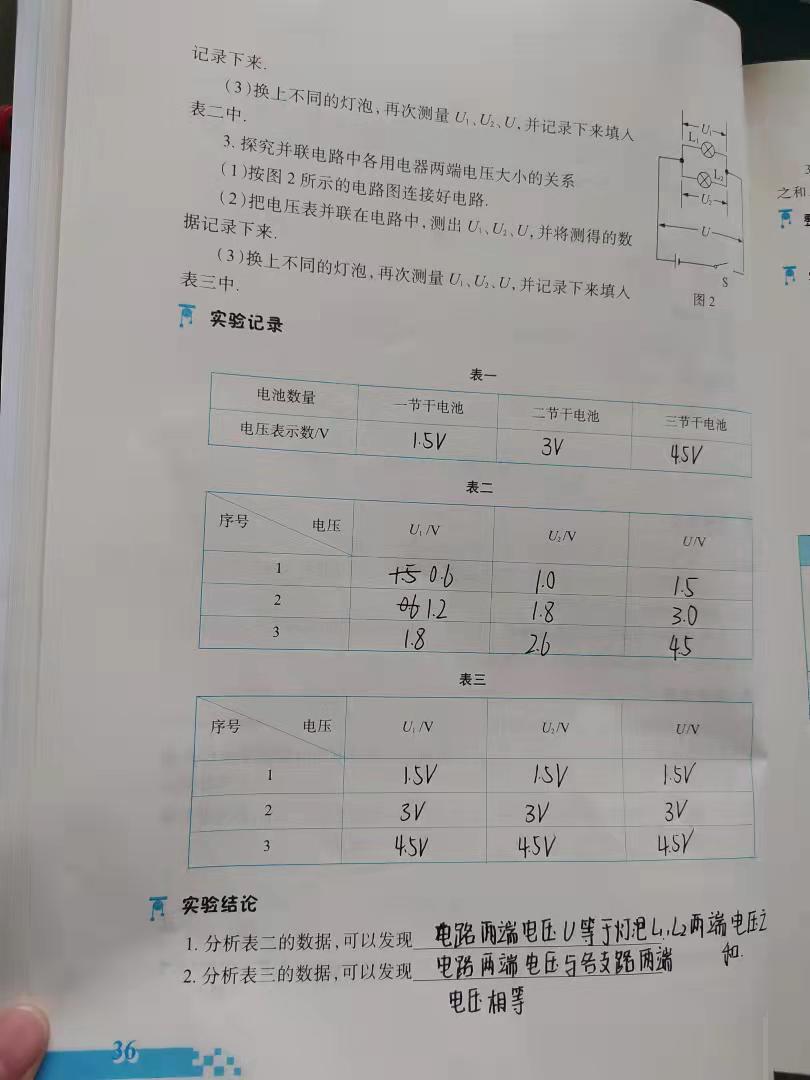 记录下来.
(3)换上不同的灯泡,再次测量 U₁、U₂、U,并记录下来填入
表二中.
3. 探究并联电路中各用电器两端电压大小的关系
(1)按图 2 所示的电路图连接好电路.
(2)把电压表并联在电路中,测出 U₁、U₂、U,并将测得的数
据记录下来.
(3)换上不同的灯泡,再次测量 U₁、U₂、U,并记录下来填入
表三中.
U₁
L₁
L₂
U₂
U
S
图 2
之和
实验记录
表一
电池数量 一节干电池 二节干电池 三节干电池
电压表示数/V 1.5V 3V 4.5V
表二
序号 电压 U₁/V U₂/V U/V
1 1.5 0.6 1.0 1.5
2 0.6 1.2 1.8 3.0
3 1.8 2.6 4.5
表三
序号 电压 U₁/V U₂/V U/V
1 1.5V 1.5V 1.5V
2 3V 3V 3V
3 4.5V 4.5V 4.5V
实验结论
1. 分析表二的数据,可以发现 电路两端电压U等于灯泡L₁,L₂两端电压之
和.
2. 分析表三的数据,可以发现 电路两端电压与各支路两端
电压相等
36